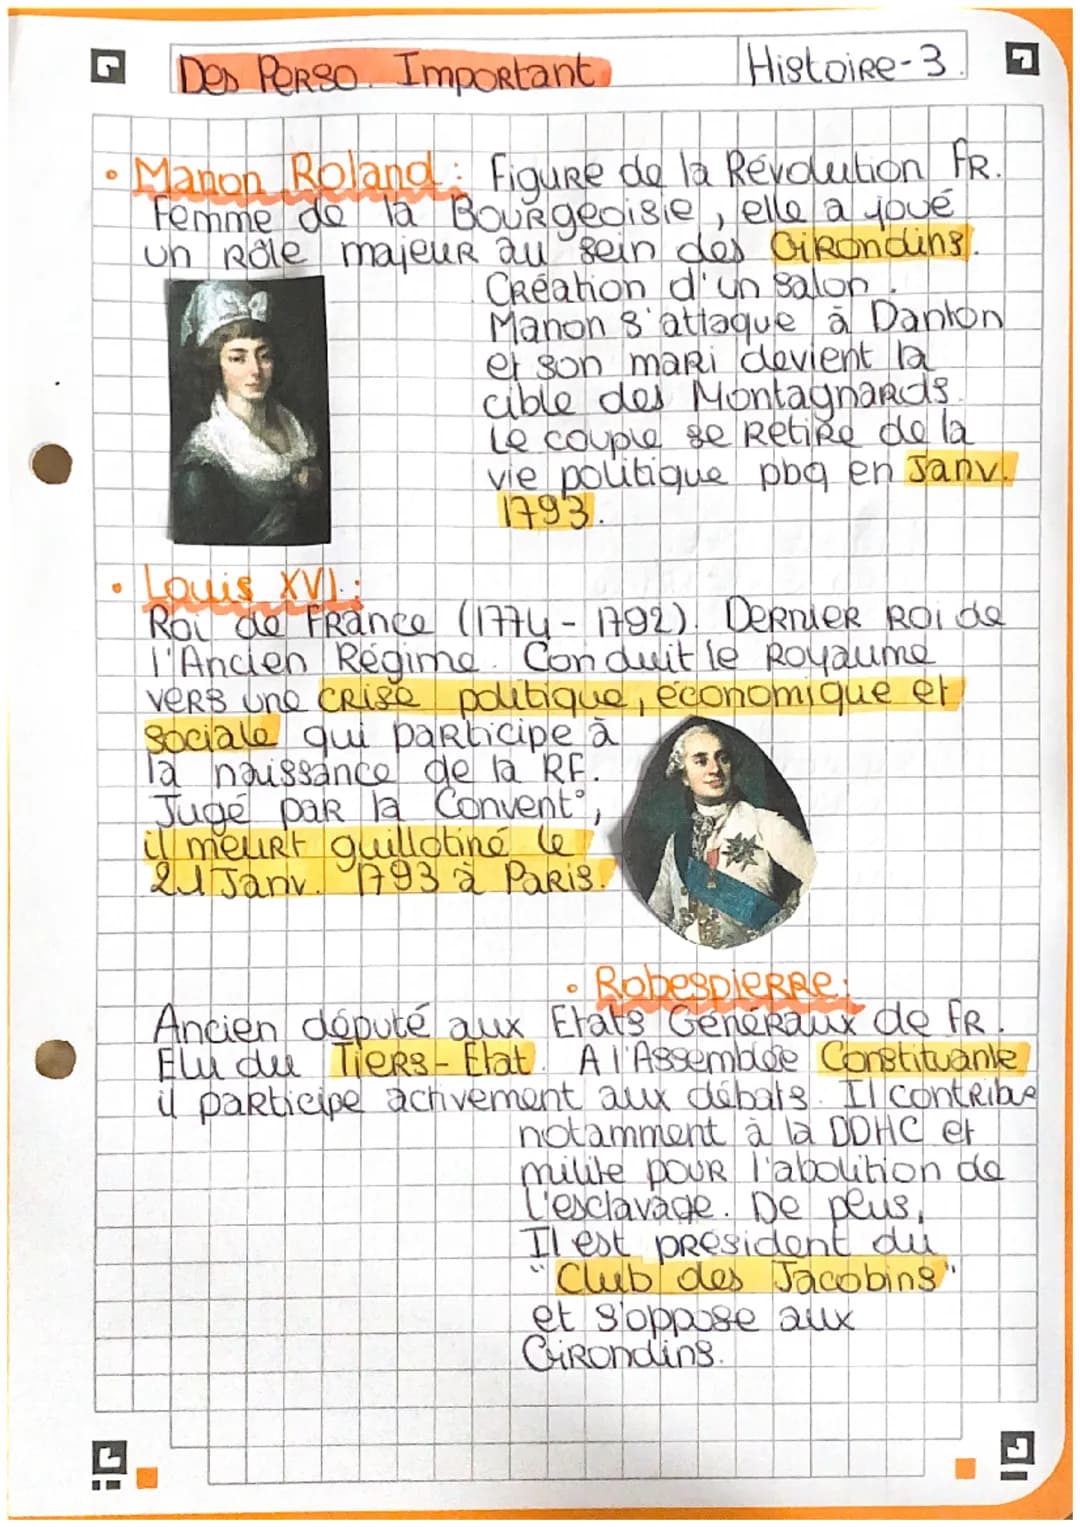 Des Perso. Important
Histoire-3.
• Manon Roland : Figure de la Révolution FR.
Femme de la Bourgeoisie, elle a joué
un rôle majeur au sein des Girondins.
Création d'un salon.
Manon s'attaque à Danton
et son mari devient la
cible des Montagnards.
Le couple se retire de la
vie politique pbq en Janv.
1793.
• Louis XVI :
Roi de France (1774 - 1792). Dernier roi de
l'Ancien Régime. Conduit le royaume
vers une crise politique, économique et
sociale qui participe à
la naissance de la RF.
Jugé par la Convent°,
il meurt guillotiné le
21 Janv. 1793 à Paris.
• Robespierre :
Ancien député aux Etats Généraux de FR.
Elu du Tiers-Etat. A l'Assemblée Constituante
il participe activement aux débats. Il contribue
notamment à la DDHC et
milite pour l'abolition de
l'esclavage. De plus,
Il est président du
"Club des Jacobins"
et s'oppose aux
Girondins.